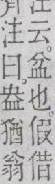 注云盆也假借
注曰盎猶翁